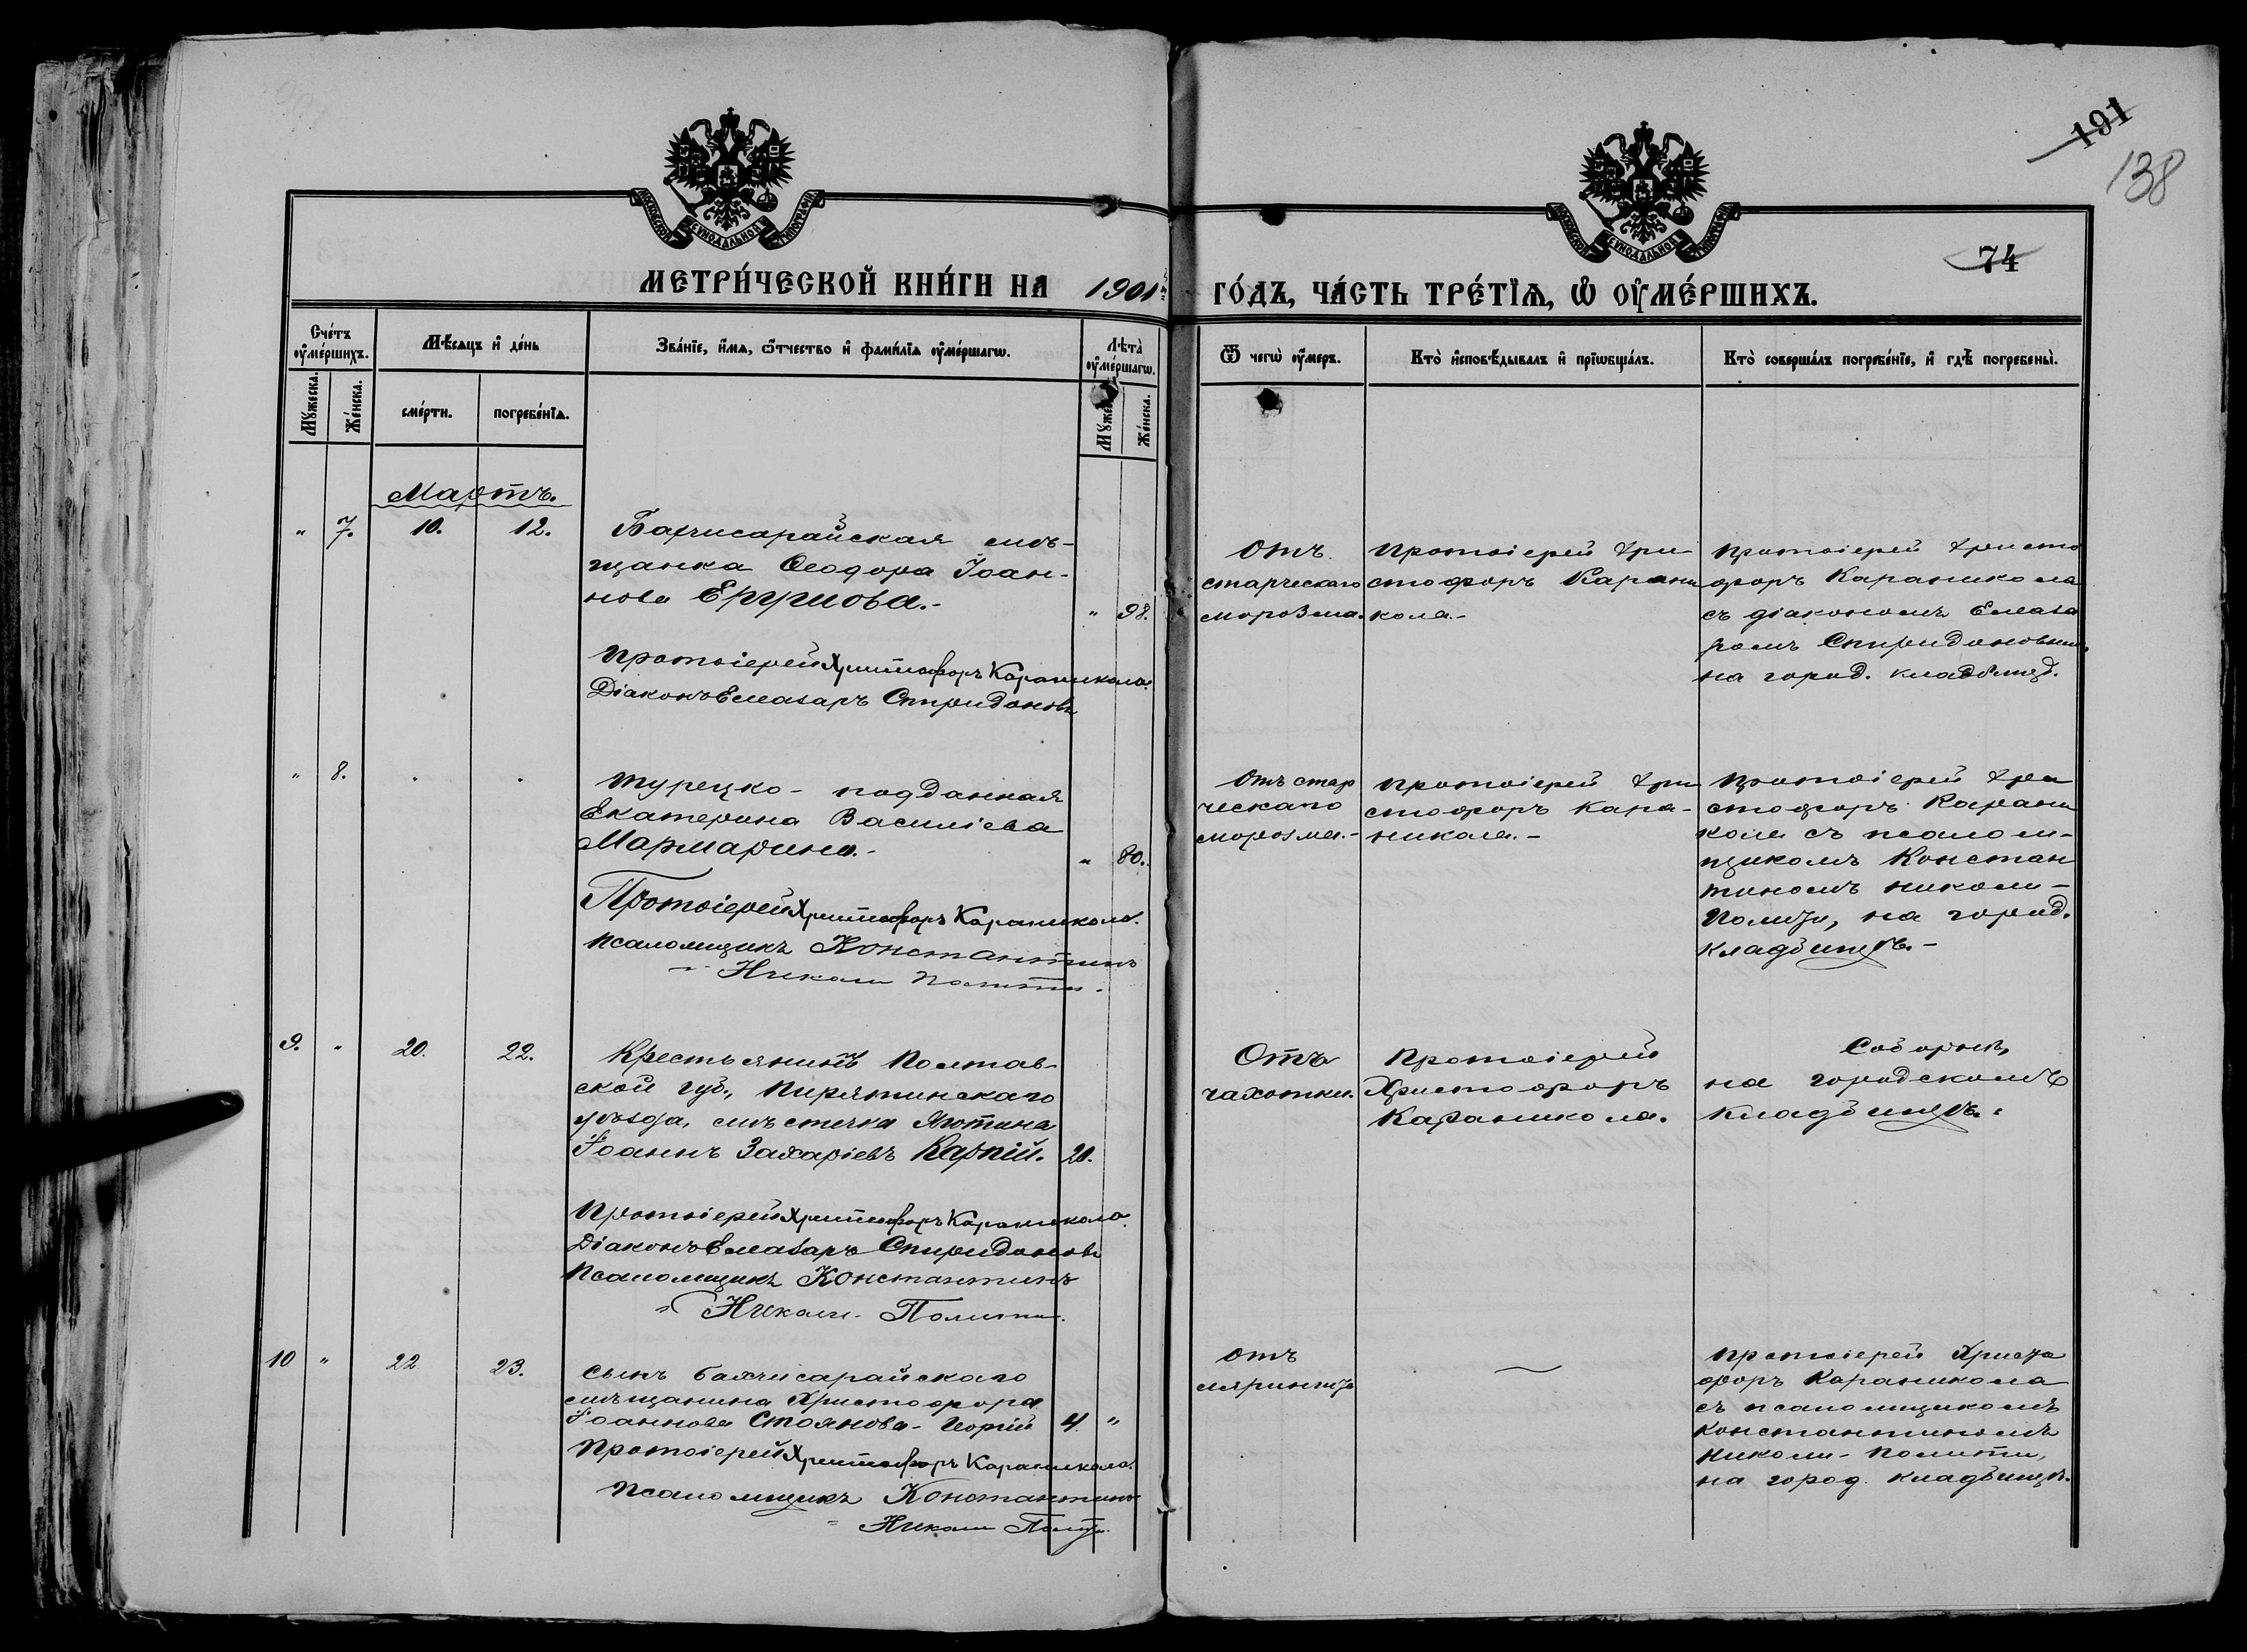 191
138
74
МОСКОВСКОЙ СѴНОДАЛЬНОЙ ТИПОГРАФІИ
МОСКОВСКОЙ СѴНОДАЛЬНОЙ ТИПОГРАФІИ
МЕТРИ́ЧЕСКОЙ КНИ́ГИ НА 1901й
ГО́ДЪ, ЧА́СТЬ ТРЕ́ТЇѦ, Ѡ҆ ОУ҆МЕ́РШИХЪ.
Сче́тъ оу҆ме́ршихъ.
Мꙋжеска.
Же́нска.
Мѣсѧцъ и҆ де́нь
сме́рти.
погребе́нїѧ.
Зва́нїе, и҆́мѧ, ѻ҆́тчество и҆ фами́лїѧ оу҆ме́ршагѡ.
Лѣта̀ оу҆ме́ршагѡ.
Мꙋжеска.
Же́нска.
Ѿ чегѡ̀ оу҆́меръ.
Кто̀ и҆сповѣ́дывалъ и҆ прїѡбща́лъ.
Кто̀ соверша́лъ погребе́нїе, и҆ гдѣ̀ погребены̀.
Мартъ.
" 7. 10. 12.
Бахчисарайская мѣ-
щанка Ѳеодора Іоан-
нова Ергунова.-
" 98.
Протоіерей Христофоръ Караникола.
Діаконъ Елеазаръ Спиридоновъ
Отъ
старческаго
морозма.
Протоіерей Хри
стофоръ Карани
кола.-
Протоіерей Христо
форъ Караникола
съ діакономъ Елеаза
ромъ Спиридоновым
на город. кладбищѣ.
" 8. " "
Турецко-подданная
Екатерина Василіева
Мармарино.-
" 80.
Протоіерей Христофоръ Караникола.
Псаломщикъ Константинъ
Николи Полити.
Отъ стар
ческаго
морозма.-
Протоіерей Хри
стофоръ Кара-
никола.-
Протоіерей Хри
стофоръ Карани
кола съ псалом-
щикомъ Констан
тиномъ Николи-
Полити, на город.
кладбищѣ.-
9. " 20. 22.
Крестьянинъ Полтав-
ской губ., Пирятинскаго
уѣзда, мѣстечка Яготина
Іоаннъ Захаріевъ Карпій. 20.
Протоіерей Христофоръ Караникола.
Діаконъ Елеазаръ Спиридоновъ
Псаломщикъ Константинъ
Николи-Полити.
Отъ
чахотки.
Протоіерей
Христофоръ
Караникола.
Соборне,
на городскомъ
кладбищѣ.
10 " 22 23.
Сынъ бахчисарайскаго
мѣщанина Христофора
Іоаннова Стоянова- Георгій 4. "
Протоіерей Христофоръ Караникола.
Псаломщикъ Константинъ
Николи Полити.
Отъ
—
Протоіерей Христо
форъ Караникола
съ псаломщикомъ
Константиномъ
Николи-Полити,
на город. кладбищѣ.